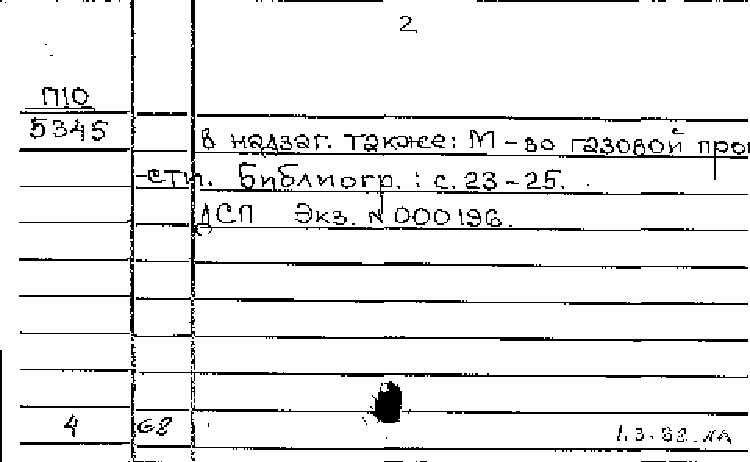 2
П10
5345
В надзаг. также: М-во газовой пром
-сти. Библиогр.: с. 23-25.
ДСП Экз. N 000196.
4 68